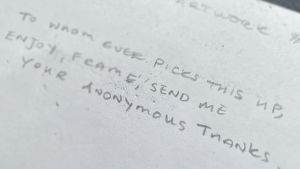 ARTWORK
TO WHOM EVER PICKS THIS UP,
ENJOY, FRAME, SEND ME
YOUR ANONYMOUS THANKS